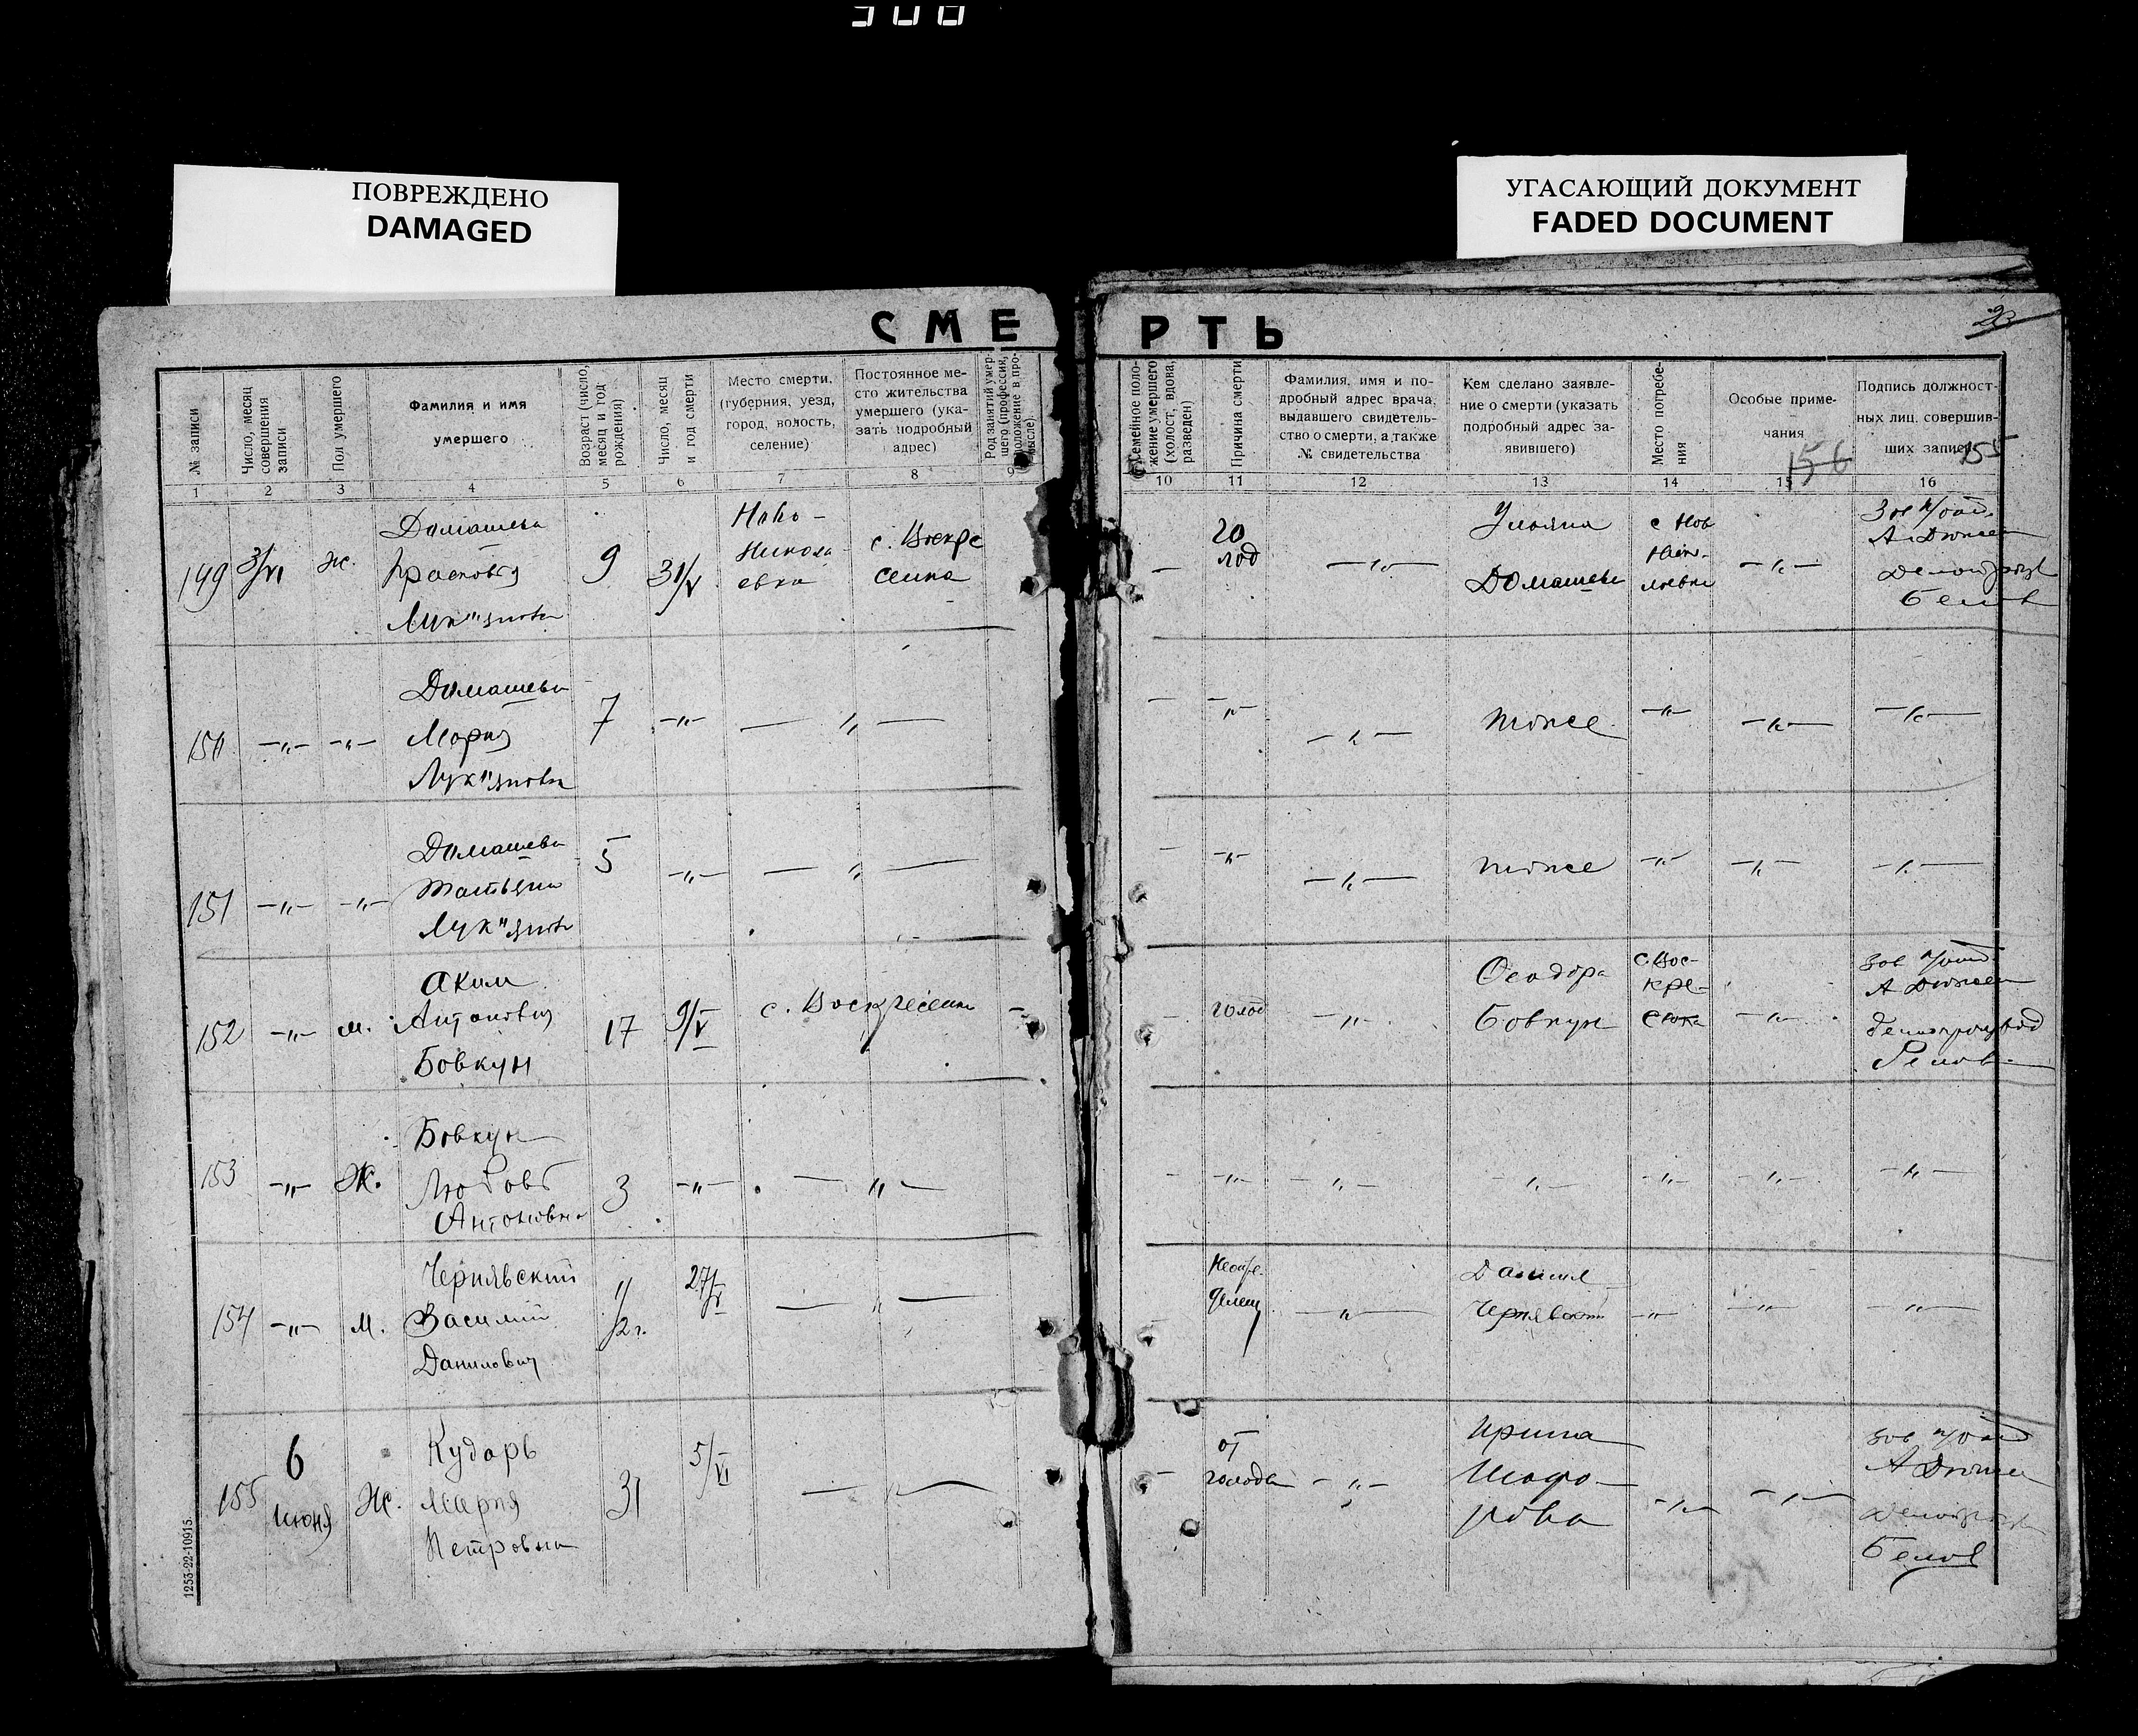 ПОВРЕЖДЕНО
DAMAGED
УГАСАЮЩИЙ ДОКУМЕНТ
FADED DOCUMENT
СМЕ РТЬ
№ записи
Число, месяц
совершения
записи
Пол умершего
Фамилия и имя
умершего
Возраст (число,
месяц и год
рождения)
Число, месяц
и год смерти
Место смерти,
(губерния, уезд,
город, волость,
селение)
Постоянное ме-
сто жительства
умершего (ука-
зать подробный
адрес)
Род занятий умер-
шего (профессия,
положение в про-
мысле).
Семейное поло-
жение умершего
(холост, вдова,
разведен)
Причина смерти
Фамилия, имя и по-
дробный адрес врача,
выдавшего свидетель-
ство о смерти, а также
№ свидетельства
Кем сделано заявле-
ние о смерти (указать
подробный адрес за-
явившего)
Место погребе-
ния
Особые приме-
чания
Подпись должност-
ных лиц, совершив-
ших запись
156
155
1 2 3 4 5 6 7 8 9 10 11 12 13 14 15 16
149 3/VI ж.
Домашева
Лук"яновн
9
31/V
Ново-
Никола
евка
с. Воскре
сенка
го
лод
Ульяна
Домашева
с Нов
150 —"— —"—
Домашева
Мария
Лук"яновн
7 —"— — " —
— —"— —"— тоже —"— —"— —"—
151 —"— —"—
Домашева
Татьяна
Лук"яновн
5 —"— — " —
— —"— —"— тоже —"— —"— —"—
152 —"— м.
Аким
Антонович
Бовкун
17 9/V с. Воскресенка —
— голод —"—
Феодора
Бовкун
с. Вос-
кре-
сенка
—"—
153 —"— Ж.
Бовкун
Любовь
Антоновна
3 —"— — " —
— —"— —"— —"— —"— —"— —"—
154 —"— м.
Чернявский
Василий
Данилович
1/2 г. 27/V — " —
Неопре-
делен
—"—
Данил
Чернявский
—"— —"— —"—
155
6
июня
Ж.
Кударь
Мария
Петровна
31 5/VI — " —
—
от
голода
—"—
Ирина
—"— —"—
Белов
1253-22-10915.